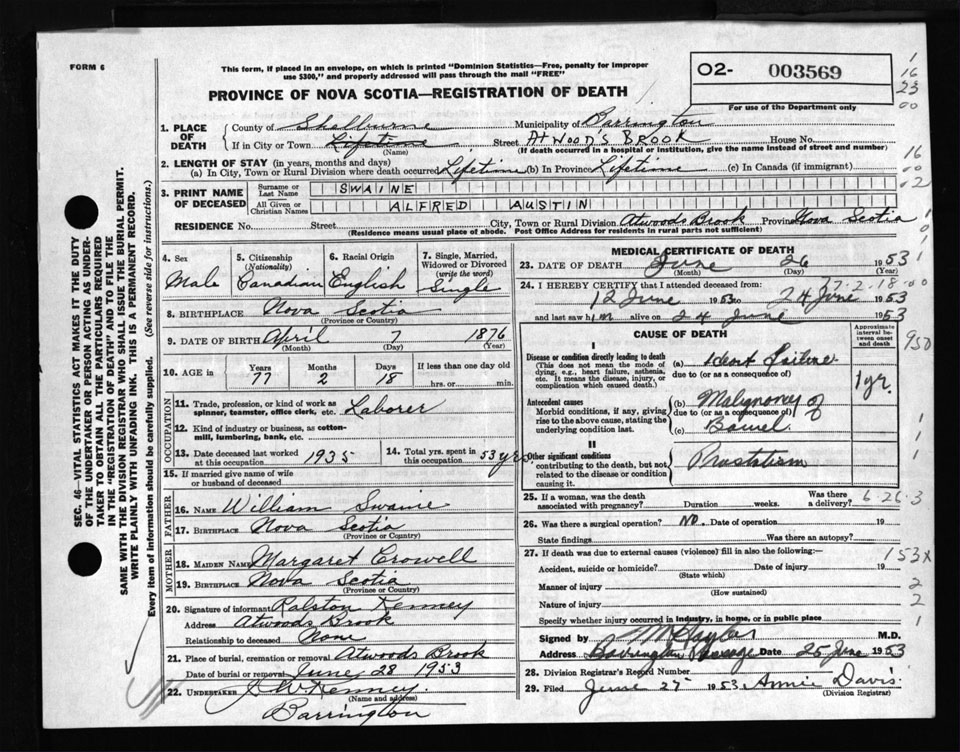 FORM 6
This form, if placed in an envelope, on which is printed "Dominion Statistics—Free, penalty for improper
use $300," and properly addressed will pass through the mail "FREE"
PROVINCE OF NOVA SCOTIA—REGISTRATION OF DEATH
O2- 003569
For use of the Department only
1
16
23
00
1. PLACE OF DEATH
County of Shelburne Municipality of Barrington
If in City or Town Lifetime (Name) Street Atwood's Brook House No.
(If death occurred in a hospital or institution, give the name instead of street and number)
2. LENGTH OF STAY (in years, months and days)
(a) In City, Town or Rural Division where death occurred Lifetime (b) In Province Lifetime (c) In Canada (if immigrant)
16
00
02
3. PRINT NAME OF DECEASED
Surname or Last Name SWAINE
All Given or Christian Names ALFRED AUSTIN
RESIDENCE No. Street City, Town or Rural Division Atwoods Brook Province Nova Scotia
(Residence means usual place of abode. Post Office Address for residents in rural parts not sufficient)
4. Sex
Male
5. Citizenship
(Nationality)
Canadian
6. Racial Origin
English
7. Single, Married,
Widowed or Divorced
(write the word)
Single
8. BIRTHPLACE Nova Scotia
(Province or Country)
9. DATE OF BIRTH April 7 1876
(Month) (Day) (Year)
10. AGE in
Years Months Days If less than one day old
77 2 18 hrs. or min.
OCCUPATION
11. Trade, profession, or kind of work as
spinner, teamster, office clerk, etc. Laborer
12. Kind of industry or business, as cotton-
mill, lumbering, bank, etc.
13. Date deceased last worked
at this occupation 1935
14. Total yrs. spent in
this occupation 53 yrs
15. If married give name of wife
or husband of deceased
FATHER
16. NAME William Swaine
17. BIRTHPLACE Nova Scotia
(Province or Country)
MOTHER
18. MAIDEN NAME Margaret Crowell
19. BIRTHPLACE Nova Scotia
(Province or Country)
20. Signature of informant Ralston Kenney
Address Atwoods Brook
Relationship to deceased None
21. Place of burial, cremation or removal Atwoods Brook
Date of burial or removal June 28 1953
22. UNDERTAKER Kenney.
(Name and address)
Barrington
MEDICAL CERTIFICATE OF DEATH
23. DATE OF DEATH June 26 1953
(Month) (Day) (Year)
24. I HEREBY CERTIFY that I attended deceased from:
12 June 1953 to 24 June 1953
and last saw him alive on 24 June 1953
CAUSE OF DEATH
Approximate
interval be-
tween onset
and death
950
I
Disease or condition directly leading to death
(This does not mean the mode of
dying, e.g., heart failure, asthenia,
etc. It means the disease, injury, or
complication which caused death.)
(a) Heart Failure
due to (or as a consequence of)
1 yr.
Antecedent causes
Morbid conditions, if any, giving
rise to the above cause, stating the
underlying condition last.
(b) Malignancy of
due to (or as a consequence of)
(c) Bowel.
II
Other significant conditions
contributing to the death, but not
related to the disease or condition
causing it.
Prostatism
25. If a woman, was the death
associated with pregnancy? Duration weeks. Was there
a delivery?
6-26-3
26. Was there a surgical operation? No. Date of operation 19
State findings Was there an autopsy?
27. If death was due to external causes (violence) fill in also the following:
153x
Accident, suicide or homicide? Date of injury 19
(State which)
Manner of injury
(How sustained)
2
Nature of injury
2
Specify whether injury occurred in industry, in home, or in public place
1
Signed by M.D.
Address Barrington Passage Date 25 June 1953
28. Division Registrar's Record Number
29. Filed June 27 1953 Annie Davis
(Division Registrar)
SEC. 46—VITAL STATISTICS ACT MAKES IT THE DUTY
OF THE UNDERTAKER OR PERSON ACTING AS UNDER-
TAKER TO OBTAIN ALL THE PARTICULARS REQUIRED
IN THE "REGISTRATION OF DEATH" AND TO FILE THE
SAME WITH THE DIVISION REGISTRAR WHO SHALL ISSUE THE BURIAL PERMIT.
WRITE PLAINLY WITH UNFADING INK. THIS IS A PERMANENT RECORD.
Every item of information should be carefully supplied. (See reverse side for instructions.)